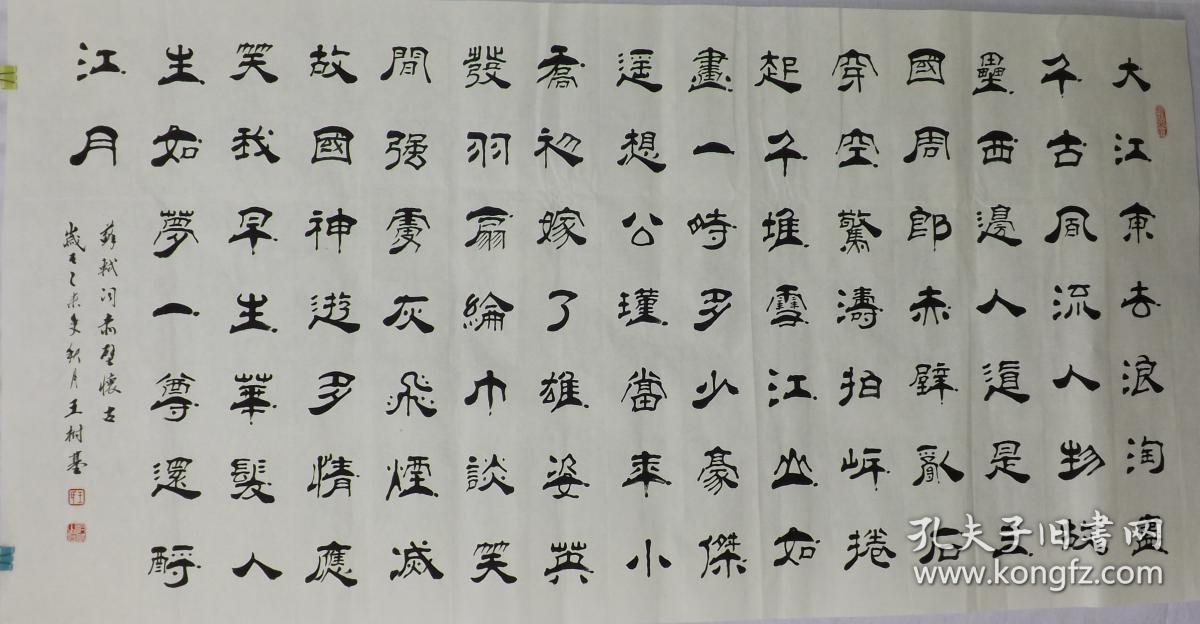 大江東去浪淘盡
千古風流人物故
壘西邊人道是三
國周郎赤壁亂石
穿空驚濤拍岸捲
起千堆雪江山如
畫一時多少豪傑
遥想公瑾當年小
喬初嫁了雄姿英
發羽扇綸巾談笑
間强虜灰飛煙滅
故國神遊多情應
笑我早生華髮人
生如夢一尊還酹
江月
蘇軾詞赤壁懷古
歲在乙未秋月王樹基
孔夫子旧书网
www.kongfz.com